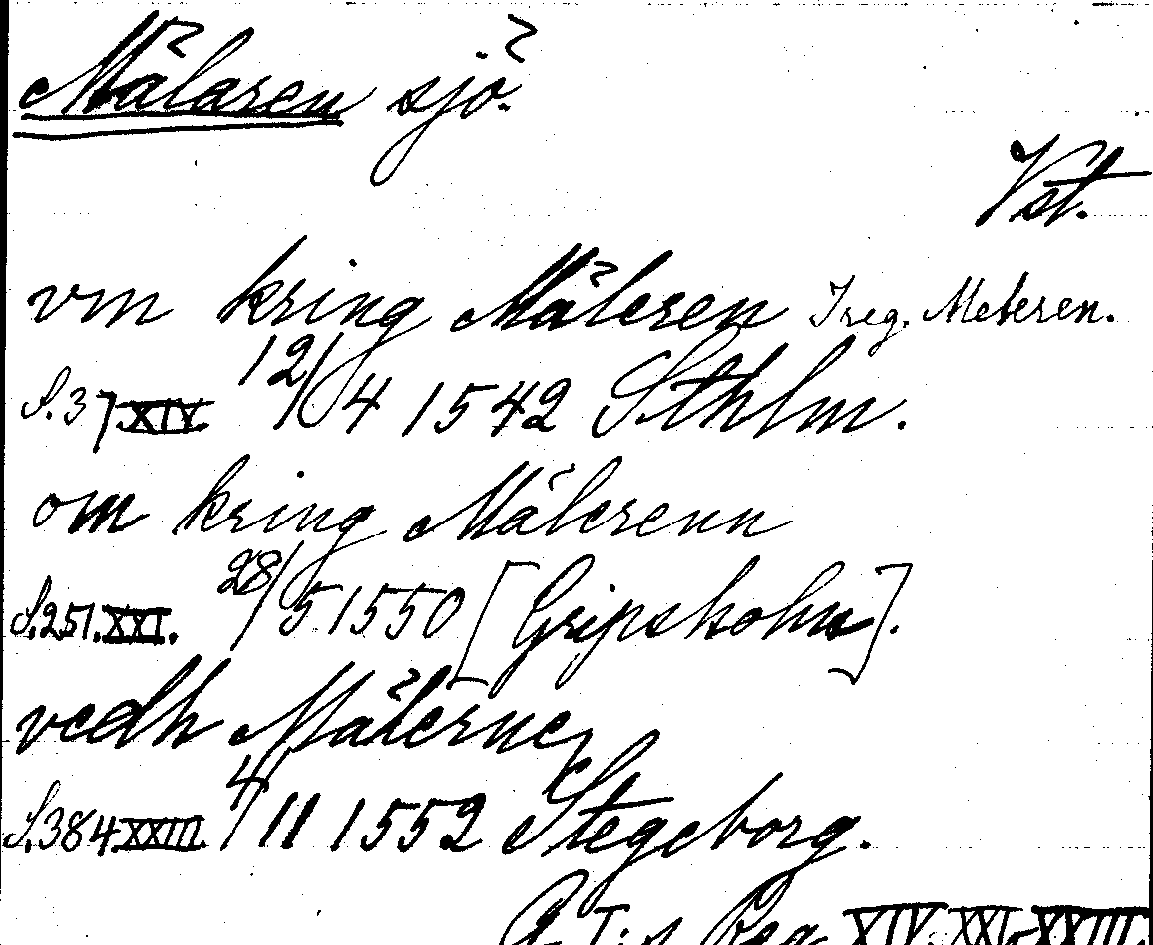 Mälaren sjö.
Vst.
vm kring Mäleren I reg. Meleren.
S. 37 XIV. 12/4 1542 Sthlm.
om kring Mälerenn
S. 251. XXI. 28/5 1550 [Gripsholm].
vedh Mälerne,
S. 384 XXIII. 4/11 1552 Stegeborg.
G. I:s Reg. XIV. XXI. XXIII.